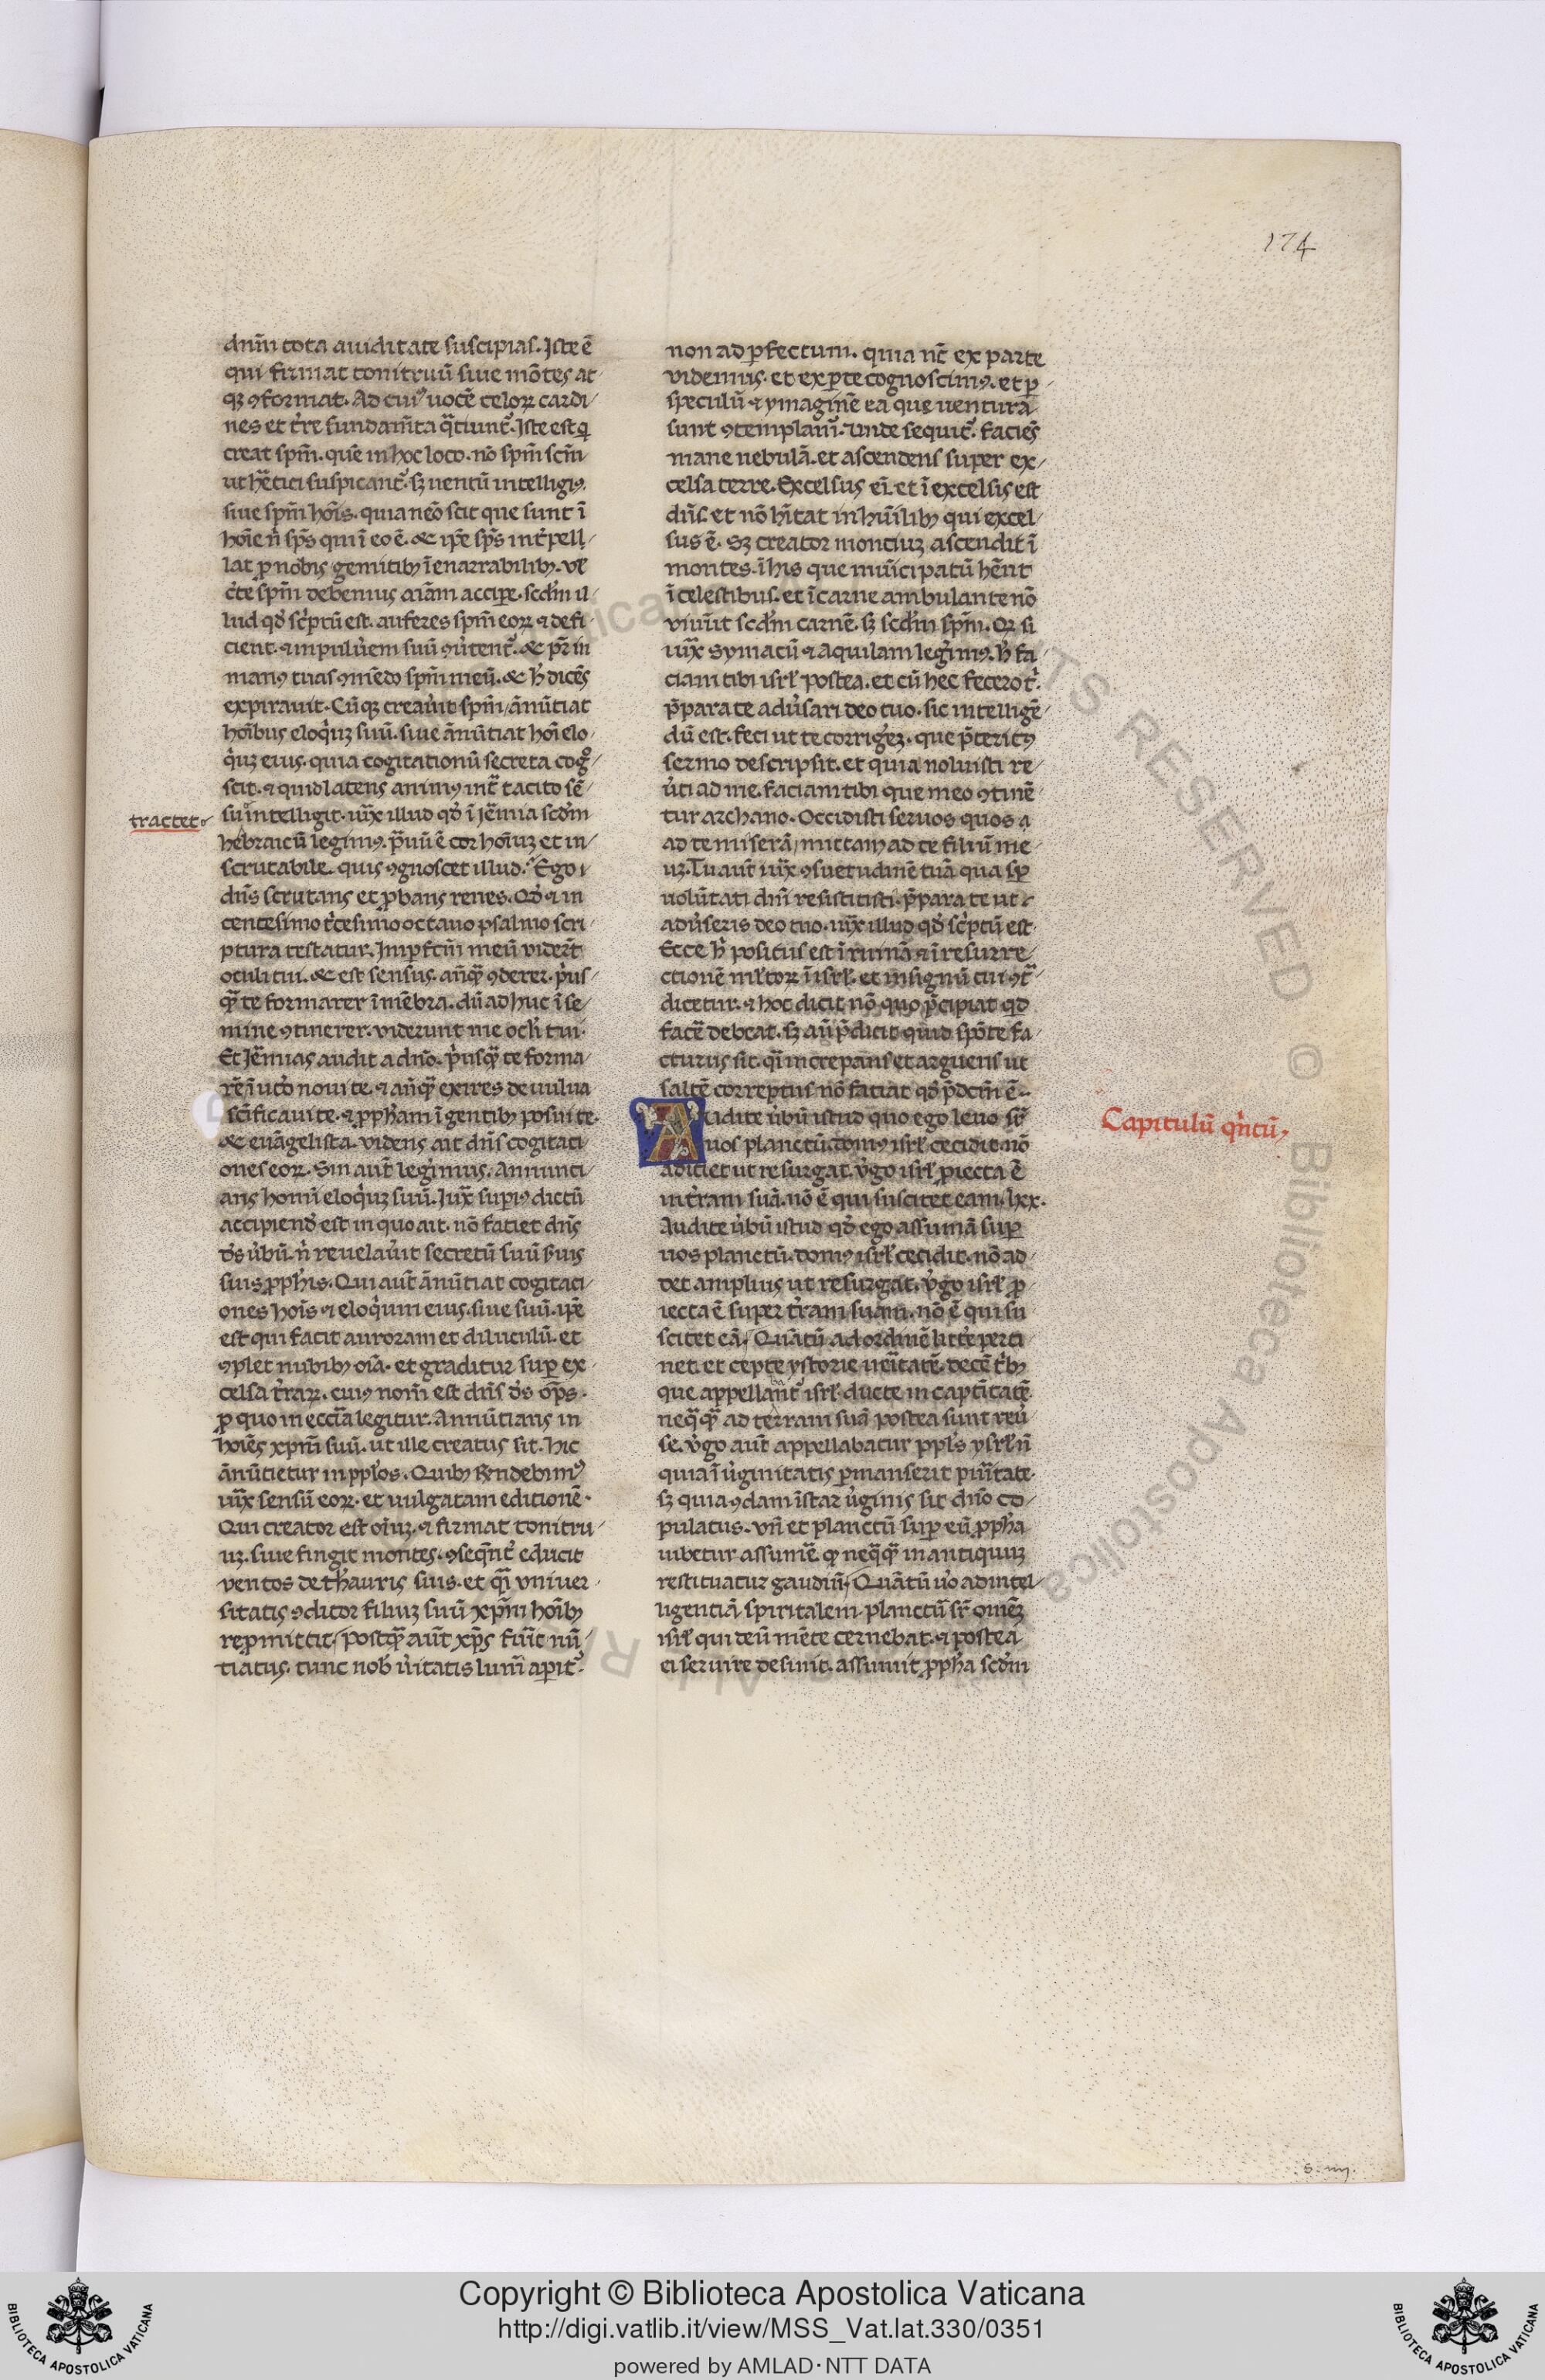 174
dn̄m tota auiditate suscipias. Iste ē
qui firmat tonitruū siue mōtes at
qꝫ ꝯformat. Ad cuiꝰ uocē celoꝝ cardi
nes et t̄re fundam̄ta q̄tiunt᷑. Iste est qͥ
creat sp̄m. quē in hoc loco. nō sp̄m sc̄m
ut h̄etici suspicant᷑. sꝫ uentū intelligimꝰ.
siue sp̄m hoı̄s. quia nēo scit que sunt ī
hoı̄e nͥ sp̄s qui ī eo ē. & ip̄e sp̄s int̄pell
lat ꝓ nobis gemitibꝫ īenarrabilibꝫ. ul̄
c̄te sp̄m debemus aı̄am accipe. scd̄m il
lud qd̓ sc̓ptū est. auferes sp̄m eoꝝ ⁊ defi
cient. ⁊ in puluͦem suū ꝯuͦtent᷑. & pr̄ in
manꝰ tuas ꝯmēdo sp̄m meū. & h̓ dicēs
expirauit. Cūqꝫ creauͦit sp̄m, ānūtiat
hoı̄bus eloqͥꝫ suū. siue ānūtiat hoı̄ elo
qͥꝫ eius. quia cogitationū secreta cogͦ
scit. ⁊ quid latens animꝰ int̄ tacito sē
tractet
su intelligit. iux̄ illud qd̓ ī Jēmia scd̄m
hebraicū legimꝰ. p̄uū ē cor hoı̄uꝫ et in
scrutabile. quis ꝯgnoscet illud? Ego
dn̄s scrutans et ꝓbans renes. Qd̓ ⁊ in
centesimo tͥcesimo octauo psalmo scri
ptura testatur. Imꝑfc̄m meū viderūt
oculi tui. & est sensus. an̄qͣ ꝯderer. pͥus
qͣ te formarer ī mēbra. dū adhuc ī se
mine ꝯtinerer. viderunt me ocl̓i tui.
Et Jēmias audit a dn̄o. pͥusqͣ te forma
rē ī ut̓o noui te. ⁊ an̄qͣ exires de uulua
sc̄ificaui te. ⁊ ꝓph̓am ī gentibꝫ posui te.
& euāgelista. videns ait dn̄s cogitati
ones eoꝝ. Sin aut̄ legimus. Annunti
ans homī eloqͥꝫ suū. Jux̄ supiꝰ dictū
accipiend̓ est in quo ait. nō faciet dn̄s
d̓s uͦbū. nͥ reuelauͦit secretū suū s̓uis
suis ꝓph̓is. Qui aut̄ ānūtiat cogitati
ones hoı̄s ⁊ eloqͥum eius. siue suū. ip̄e
est qui facit auroram et diluculū. et
ꝯplet nubibꝫ oı̄a. et graditur suꝑ ex
celsa t̓raꝝ. cuiꝰ nom̄ est dn̄s d̓s op̄s.
ꝓ quo in eccl̄ia legitur. Annūtians in
hoı̄es xp̄m suū. ut ille creatus sit. hic
ānūtietur in ppl̓os. Quibꝫ rn̄debimꝰ
iux̄ sensū eoꝝ. et uulgatam editionē.
Qui creator est oı̄uꝫ. ⁊ firmat tonitru
uꝫ. siue fingit montes. ꝯseqn̄t᷑ educit
ventos de th̓auris suis. et qͥ vniuer
sitatis ꝯditor filiuꝫ suū xp̄m hoı̄bꝫ
reꝓmittit. Postqͣ aut̄ xp̄s fuͦit nū
tiatus. tunc nob̓ uͦitatis lum̄ apit᷑.
non ad ꝑfectum. quia nc̄ ex parte
videmus. et ex ꝑte cognoscimꝰ. et ꝑ
speculū ⁊ ymaginē ea que uentura
sunt ꝯtemplam᷑. Unde sequit᷑. faciēs
mane nebulā. et ascendens super ex
celsa terre. Excelsus eı̄. et ī excelsis est
dn̄s. et nō hı̄tat in hūilibꝫ qui excel
sus ē. Sꝫ creator montiuꝫ ascendit ī
montes. ī his que mūicipatū hēnt
ī celestibus. et ī carne ambulante nō
viuūt scd̄m carnē. sꝫ scd̄m sp̄m. Qꝫ si
iux̄ Symacū ⁊ Aquilam legimꝰ. h̓ fa
ciam tibi isrl̓ postea. et cū hec fecero t̓.
p̄para te aduͦsari deo tuo. sic intelligē
dū est. feci ut te corrigeꝫ. que p̄teritꝰ
sermo descripsit. et quia noluisti re
uͦti ad me. faciam tibi que meo ꝯtinē
tur archano. Occidisti seruos quos a
ad te miserā, mittam ad te filiū me
uꝫ. Tu aut̄ iux̄ ꝯsuetudinē tuā qua sꝑ
uolūtati dn̄i restitisti. p̄para te ut
aduͦseris deo tuo. iux̄ illud qd̓ sc̓ptū est.
Ecce h̓ positus est ī ruinā ⁊ ī resurre
ctionē ml̓toꝝ ī isrl̓. et in signū cui ꝯt̄
dicetur. ⁊ hoc dicit nō quo p̄cipiat qd
facē debeat. sꝫ aū p̄dicit quid spōte fa
cturus sit. qͥ increpans et arguens ut
saltē correptus nō faciat qd̓ p̄dcm̄ ē.
Capitulū qͥntū,
Audite uͦbū istud quo ego leuo sr̄
uos planctū. domꝰ isrl̓ cecidit. nō
adiciet ut resurgat. uͦgo isrl̓ ꝓiecta ē
in t̓ram suā. nō ē qui suscitet eam. lxx.
Audite uͦbū istud qd̓ ego assumā suꝑ
uos planctū. domꝰ isrl̓ cecidit. nō ad
det amplius ut resurgat. uͦgo isrl̓ ꝓ
iecta ē super t̓ram suam. nō ē qui su
scitet eā. Quātū ad ordinē litt̓e perti
net. et cepte ystorie ueı̄tatē. decē t̓bꝫ
que appellānt᷑ isrl̓ ducte in captı̄tatē
neqͣqͣ ad terram suā postea sunt reuͦ
se. uͦgo aut̄ appellabatur ppl̓s ysrl̓ n̄
quia ī uͦginitatis ꝑmanserit puı̄tate.
sꝫ quia ꝯdam īstar uͦginis sit dn̄o co
pulatus. vn̄ et planctū suꝑ eū ꝓph̓a
iubetur assumē. qꝫ neqͣqͣ in antiquuꝫ
restituatur gaudiū. Quātū uͦo ad intel
ligentiā spiritalem planctū sr̄ omēꝫ
isrl̓ qui deū mēte cernebat. ⁊ postea
ei seruire desinit. assumit ꝓph̓a scd̄m
s. iiij.
Copyright © Biblioteca Apostolica Vaticana
http://digi.vatlib.it/view/MSS_Vat.lat.330/0351
powered by AMLAD·NTT DATA
BIBLIOTECA APOSTOLICA VATICANA
BIBLIOTECA APOSTOLICA VATICANA